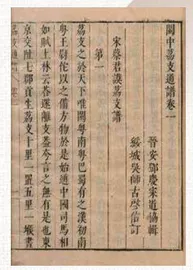 閩中荔支通譜卷一
晉安鄧慶寀道協輯
綏城吳師古啓信訂
宋蔡君謨荔支譜
第一
荔支之於天下唯閩粵南粵巴蜀有之漢初南
粵王尉佗以之備方物於是始通中國司馬相
如賦上林云荅遝離支蓋夸言之無有是也東
京交阯七郡貢生荔支十里一置五里一堠晝